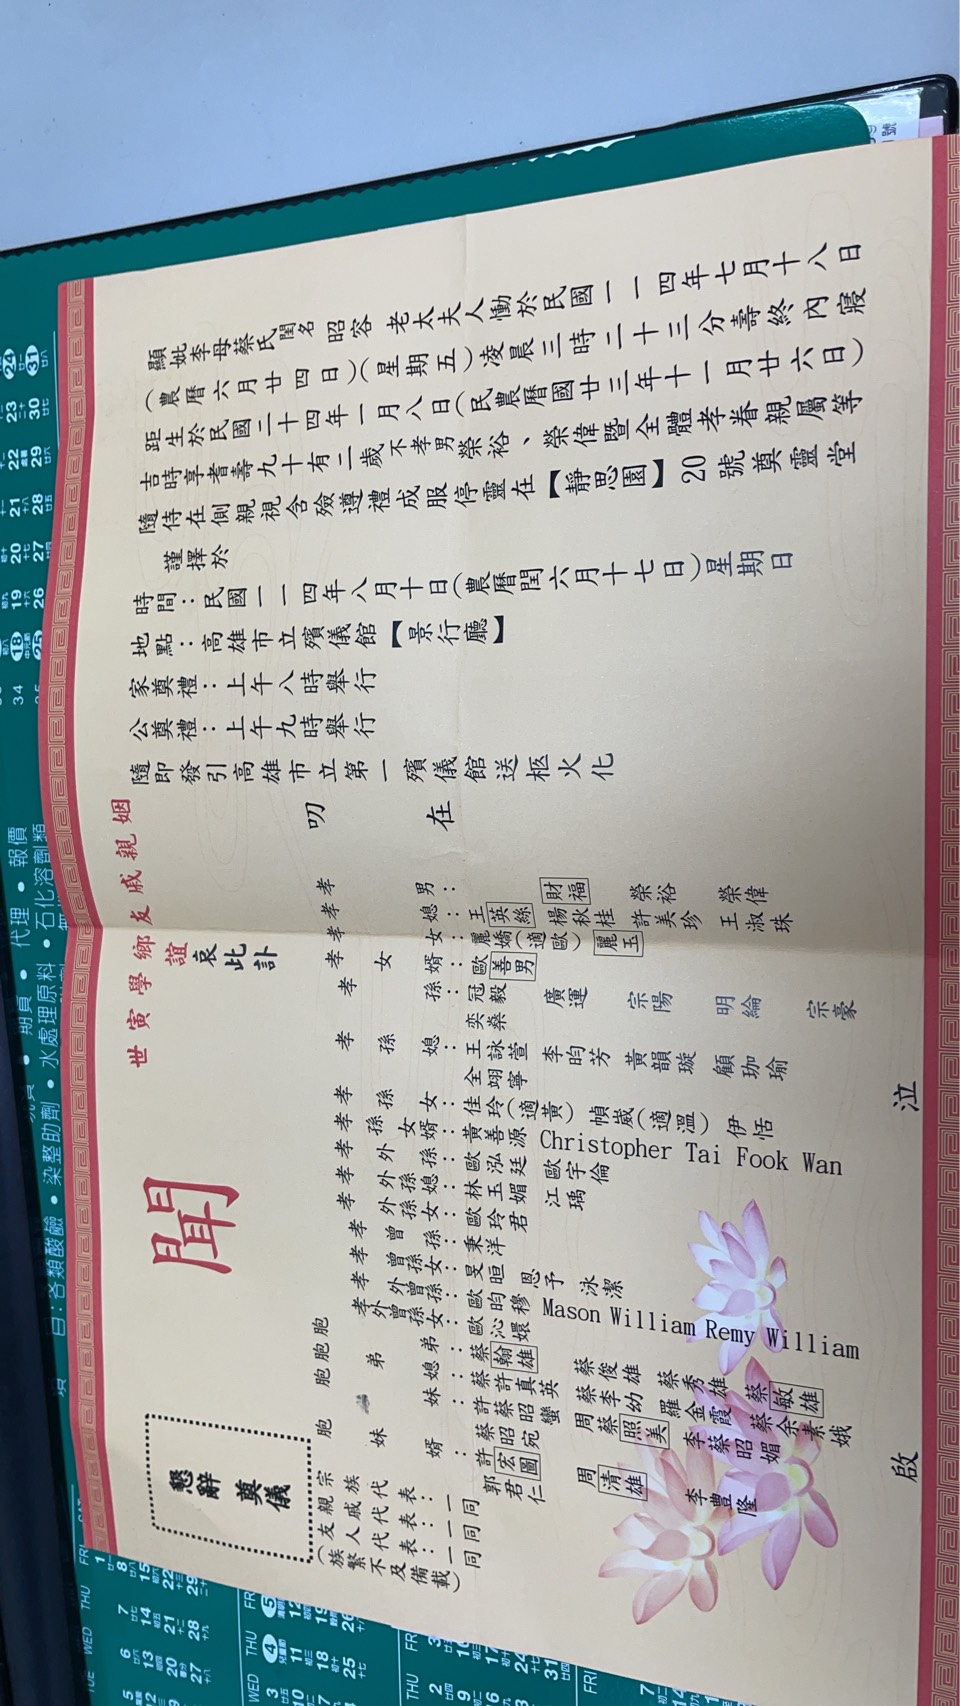 顯妣李母蔡氏閨名昭容老太夫人慟於民國一一四年七月十八日
（農曆六月廿四日）（星期五）凌晨三時二十三分壽終內寢
距生於民國二十四年一月八日（民農曆國廿三年十一月廿六日）
吉時享耆壽九十有二歲不孝男榮裕、榮偉暨全體孝眷親屬等
隨侍在側親視含殮遵禮成服停靈在【靜思園】20號奠靈堂
謹擇於
時間：民國一一四年八月十日（農曆閏六月十七日）星期日
地點：高雄市立殯儀館【景行廳】
家奠禮：上午八時舉行
公奠禮：上午九時舉行
隨即發引高雄市立第一殯儀館送柩火化
叨在
姻親戚友鄉學寅世誼
哀此訃
聞
孝男：財福 榮裕 榮偉
孝媳：王英絲 楊秋桂 許美珍 王淑珠
孝女：麗嬌（適歐） 麗玉
孝女婿：歐善男
孝孫：冠毅 廣運 宗陽 明綸 宗豪
奕燊
孝孫媳：王詠萱 李昀芳 黃韻璇 顧珈瑜
全翊寧
孝孫女：佳玲（適黃） 幀崴（適溫） 伊恬
孝孫女婿：黃善源 Christopher Tai Fook Wan
孝外孫：歐泓廷 歐宇倫
孝外孫媳：林玉媚 江瑀
孝外孫女：歐玲君
孝曾孫：秉洋
孝曾孫女：旻晅 恩予 泳潔
孝外曾孫：歐昀穆 Mason William Remy William
孝外曾孫女：歐沁嬛
胞弟：蔡翰雄 蔡俊雄 蔡秀雄 蔡敏雄
胞弟媳：蔡許真英 蔡李幼 羅金霞 蔡余素娥
胞妹：許蔡昭蠻 周蔡照美 李蔡昭媚
蔡昭宛
胞妹婿：許宏圖 周清雄 李豐隆
郭君仁
宗族代表：一同
親戚代表：一同
友人代表：一同
（族繁不及備載）
泣啟
懇辭
奠儀
項目：各類酸鹼 • 染整助劑 • 水處理原料 • 石化溶劑類
期貨 • 代理 • 報價